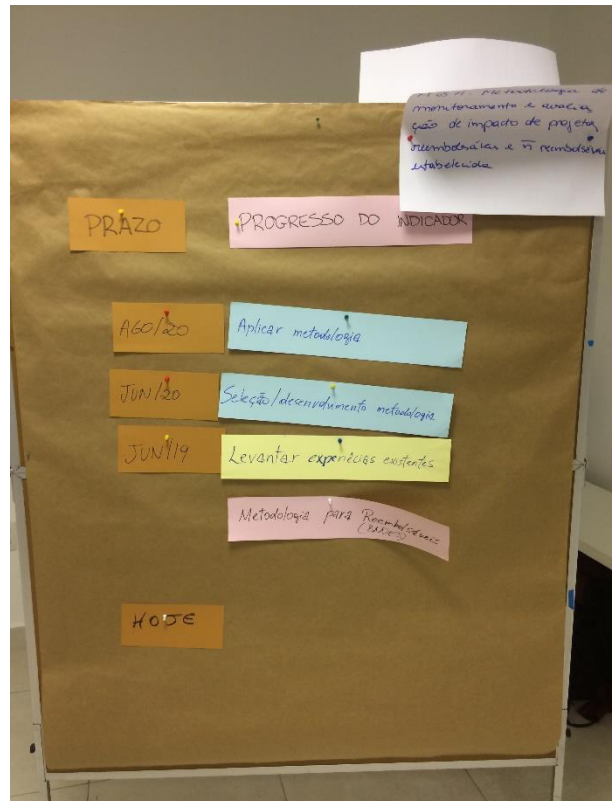 Metodologia de
monitoramento e avalia
ção de impacto de projetos
reembolsáveis e ñ reembolsáveis
estabelecida
PRAZO
PROGRESSO DO INDICADOR
AGO/20
Aplicar metodologia
JUN/20
Seleção/desenvolvimento metodologia
JUN/19
Levantar experiêcias existentes
Metodologia para Reembolsáveis
(BNDES)
HOJE